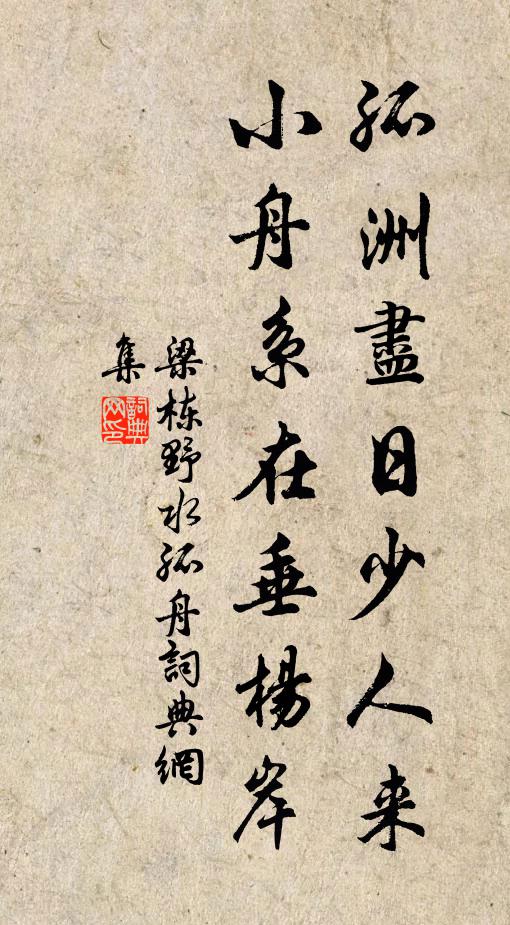 孤洲盡日少人来
小舟系在垂楊岸
梁栋野水孤舟詞典網
集
詞典网印